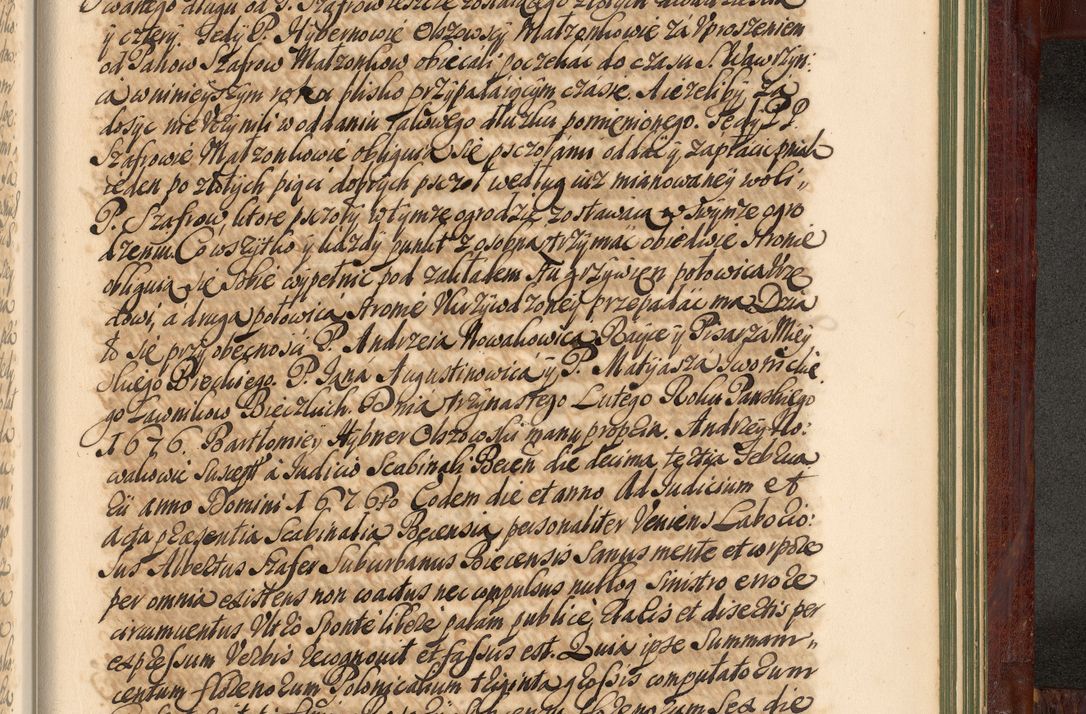 wanego długu od P. Szafrow ieszcze zostaiącego złotych dwadziescia
y cztery. Tedy P. Hybernowie Olszowscy Małzonkowie za Vproszeniem
od Panow Szafrow Małzonkow obiecali poczekać do czasu S. Wawrzyn:
ca w ninieyszym roku blisko przypadaiącym czasie. A ieżeliby za
dosyc nie Vczynili w oddaniu takowego dłuzku pomienionego. Tedy PP.
Szafrowie Małzonkowie obliguią się psczołami oddać y zapłacic pniak
ieden po złotych pięci dobrych psczoł według iuż mianowaney woli„
P. Szafrow, ktore psczoły w tymze ogrodzie zostawaią w Swymze ogro
dzeniu. Co wszytko y kazdy punkt z osobna trzymać obiedwie stronie
obliguią się sobie wypełnić pod zakładem stu grzywien połowica Vrzę
dowi, a druga połowica stronie Vkrzywdzoney przepadać ma. Działo
to się przy obecnosci P. Andrzeia Nowakowica Rayce y Pisarza Miey
skiego Bieckiego. P. Jana Augustinowica y P. Matyasza Iwonickie
go Ławnikow Bieczkich. Dnia trzynastego Lutego Roku Panskiego
1676. Bartłomiey Hybner Olszowski manu propria. Andrzey No:
wakowic suscept a Iudicio Scabinali Becen die decima tertia Februa
rii anno Domini 1676to Eodem die et anno Ad Iudicium et
acta præsentia Scabinalia Becensia personaliter Veniens Laborio:
sus Albertus Szafer Suburbanus Biecensis Sanus mente et corpore
per omnia existens non coactus nec compulsus nulloq sinistro errore
circumuentus Vltro Sponte libere palam publice, ac disertis per
expressum Verbis recognouit et fassus est. Quia ipse Summam„
centum florenorum Polonicalium triginta grossis computatorum